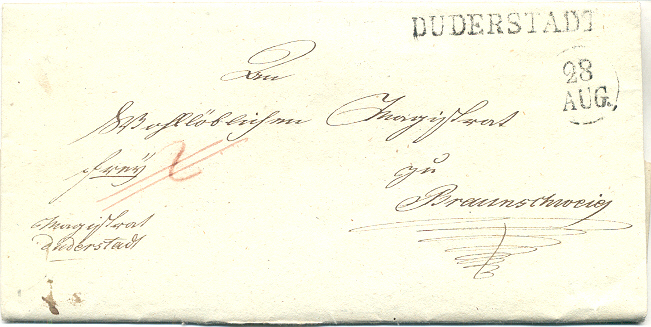 DUDERSTADT
28
AUG.
An
Wohllöblichen Magistrat
frey
zu
Braunschweig
Magistrat
Duderstadt